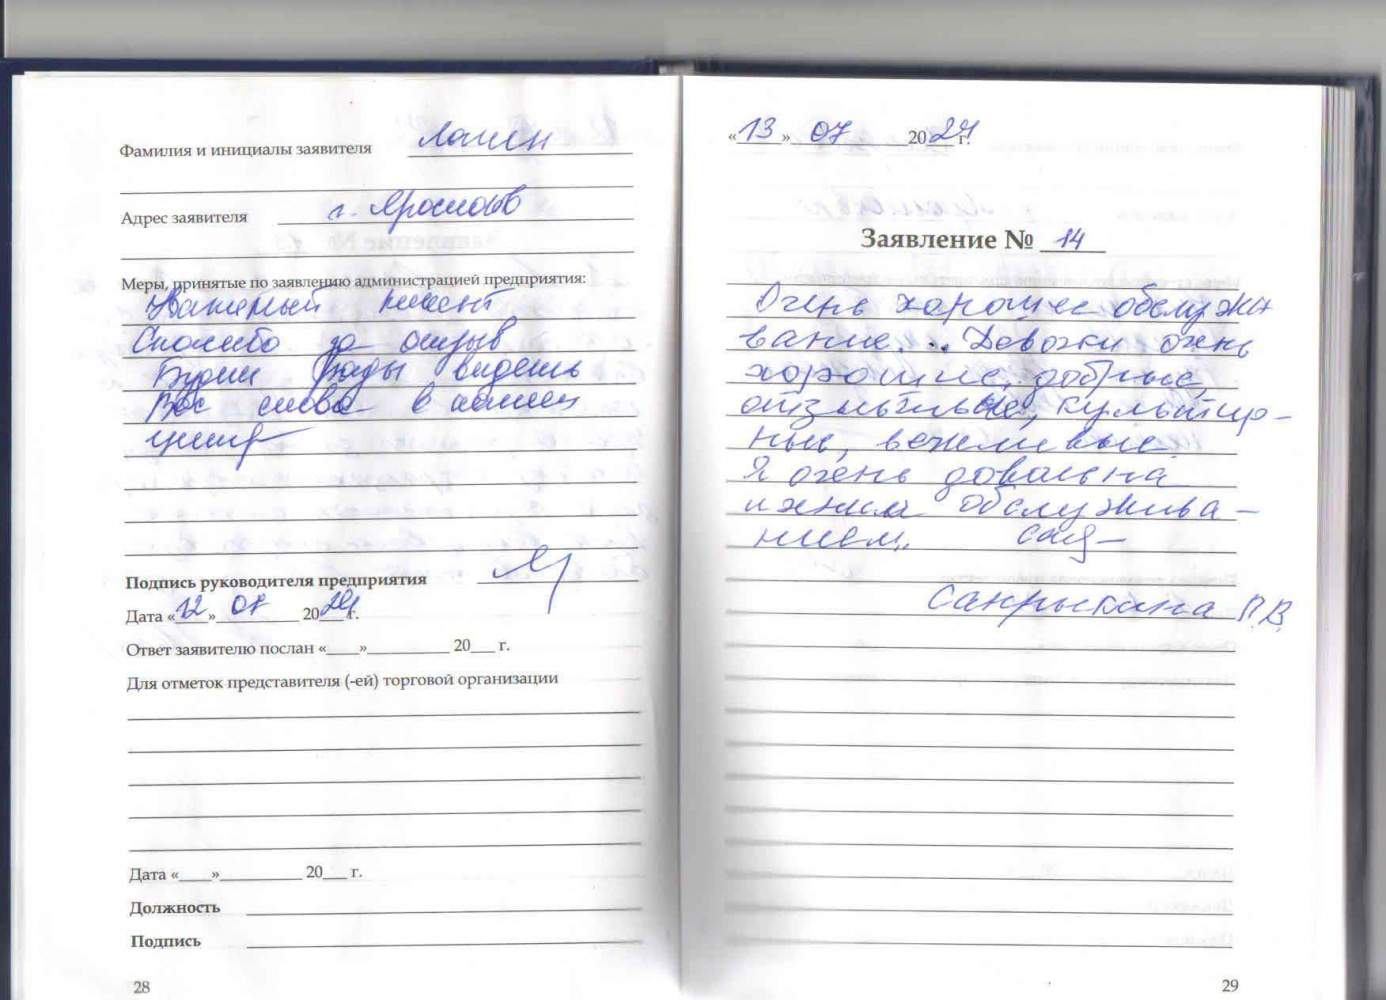 Фамилия и инициалы заявителя
Адрес заявителя г. Ярославль
Меры, принятые по заявлению администрацией предприятия:
Уважаемый клиент
Спасибо за отзыв
Будем рады видеть
Вас снова в нашем
центре
Подпись руководителя предприятия
Дата «12» 07 2024 г.
Ответ заявителю послан «___»_________ 20__ г.
Для отметок представителя (-ей) торговой организации
Дата «___»_________ 20__ г.
Должность
Подпись
28
«13» 07 2024 г.
Заявление № 14
Очень хорошее обслужи
вание... Девочки очень
хорошие, добрые,
отзывчивые, культур-
ные, вежливые.
Я очень довольна
ихним обслужива-
нием.
П.В.
29